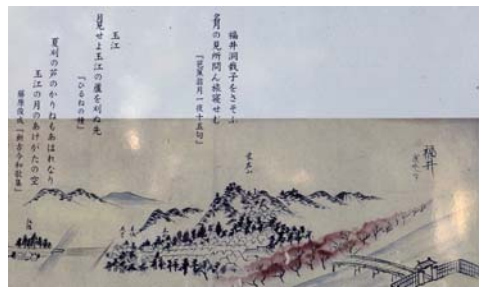 福井洞哉子をさそふ
名月の見所問ん旅寝せむ
『芭蕉翁月一夜十五句』
玉江
月見せよ玉江の蘆を刈ぬ先
『ひるねの種』
夏刈の芦のかりねもあはれなり
玉江の月のあけがたの空
藤原俊成『新古今和歌集』
福井